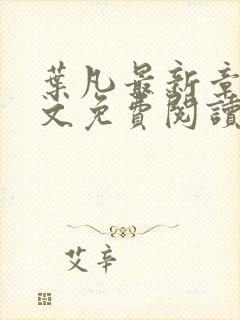 葉凡最新章
文免費閱讀
艾辛